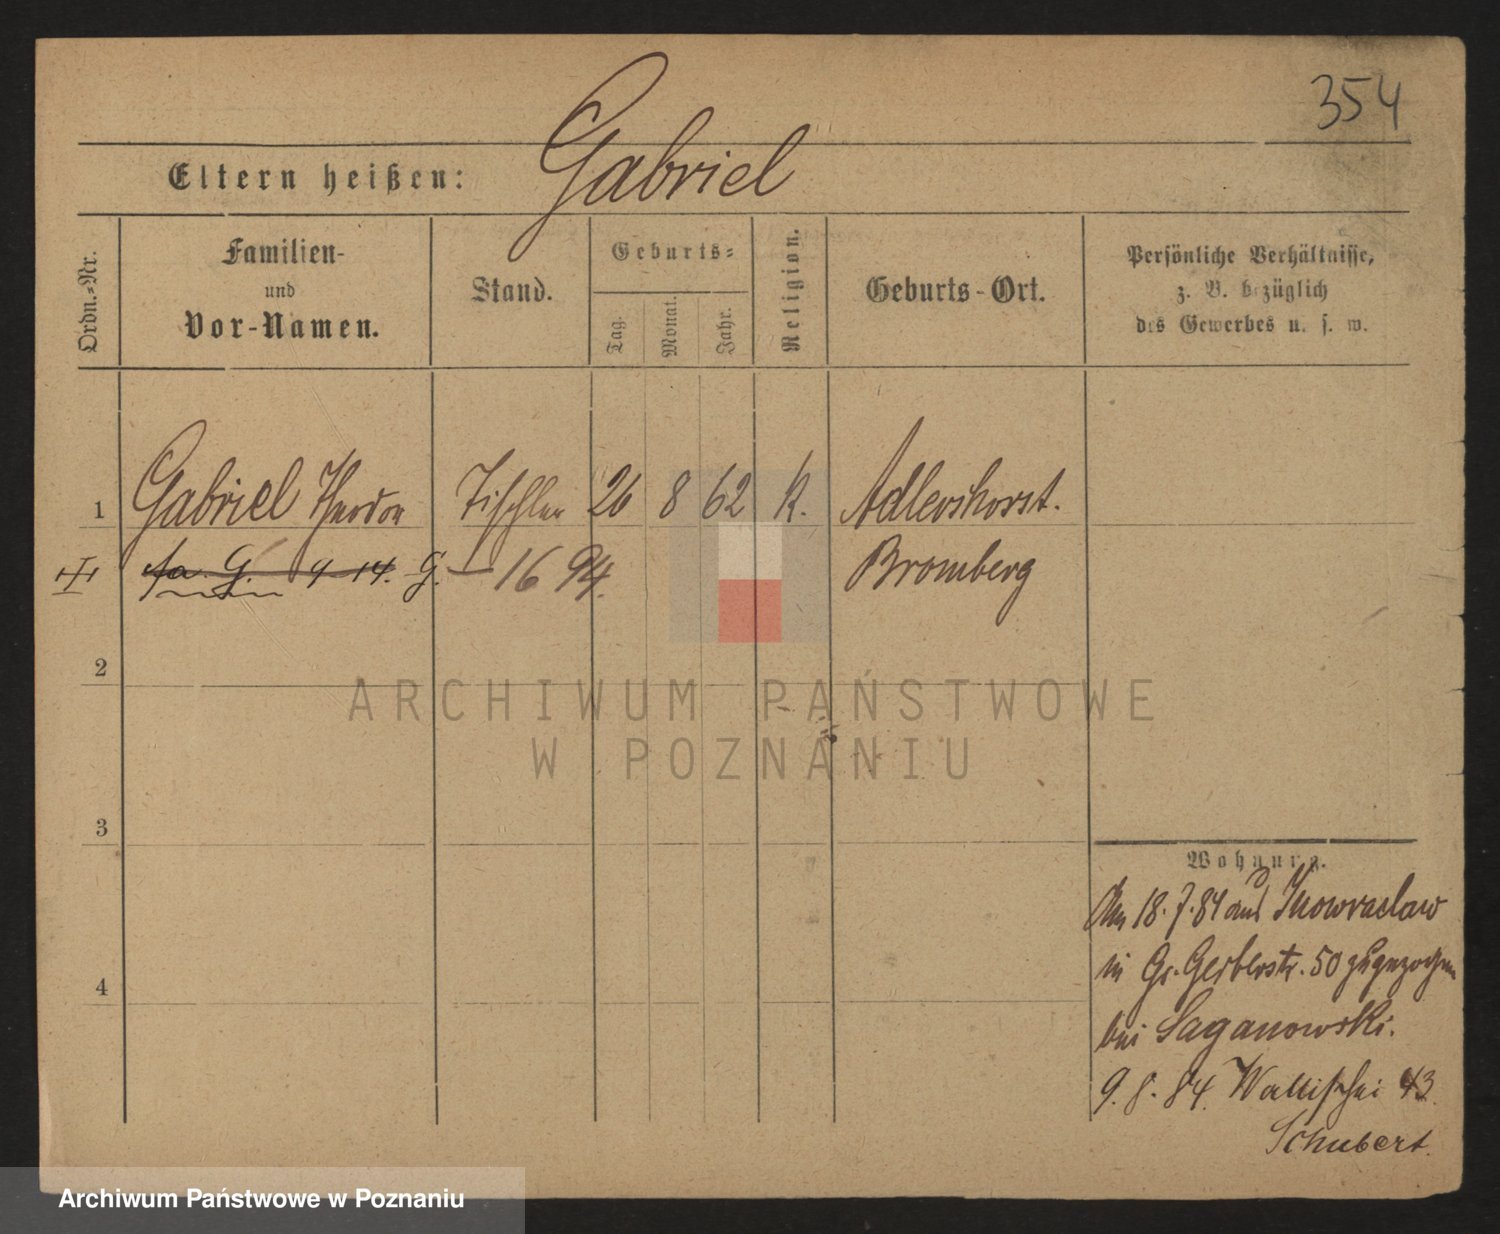 354
Eltern heißen: Gabriel
Ordn.-Nr.
Familien-
und
Vor-Namen.
Stand.
Geburts-
Tag.
Monat.
Jahr.
Religion.
Geburts-Ort.
Persönliche Verhältnisse,
z. B. bezüglich
des Gewerbes u. s. w.
1 Gabriel Theodor Tischler 26 8 62 K. Adlershorst.
G. 9 14. G. — 16 94. Bromberg
2
3
4
Wohnung.
Am 18.7.84 aus Inowraclaw
in Gr. Gerberstr. 50 zugezogen
bei Saganowski.
9.8.84. Wallischei 43
Schubert.
ARCHIWUM PAŃSTWOWE
W POZNANIU
Archiwum Państwowe w Poznaniu